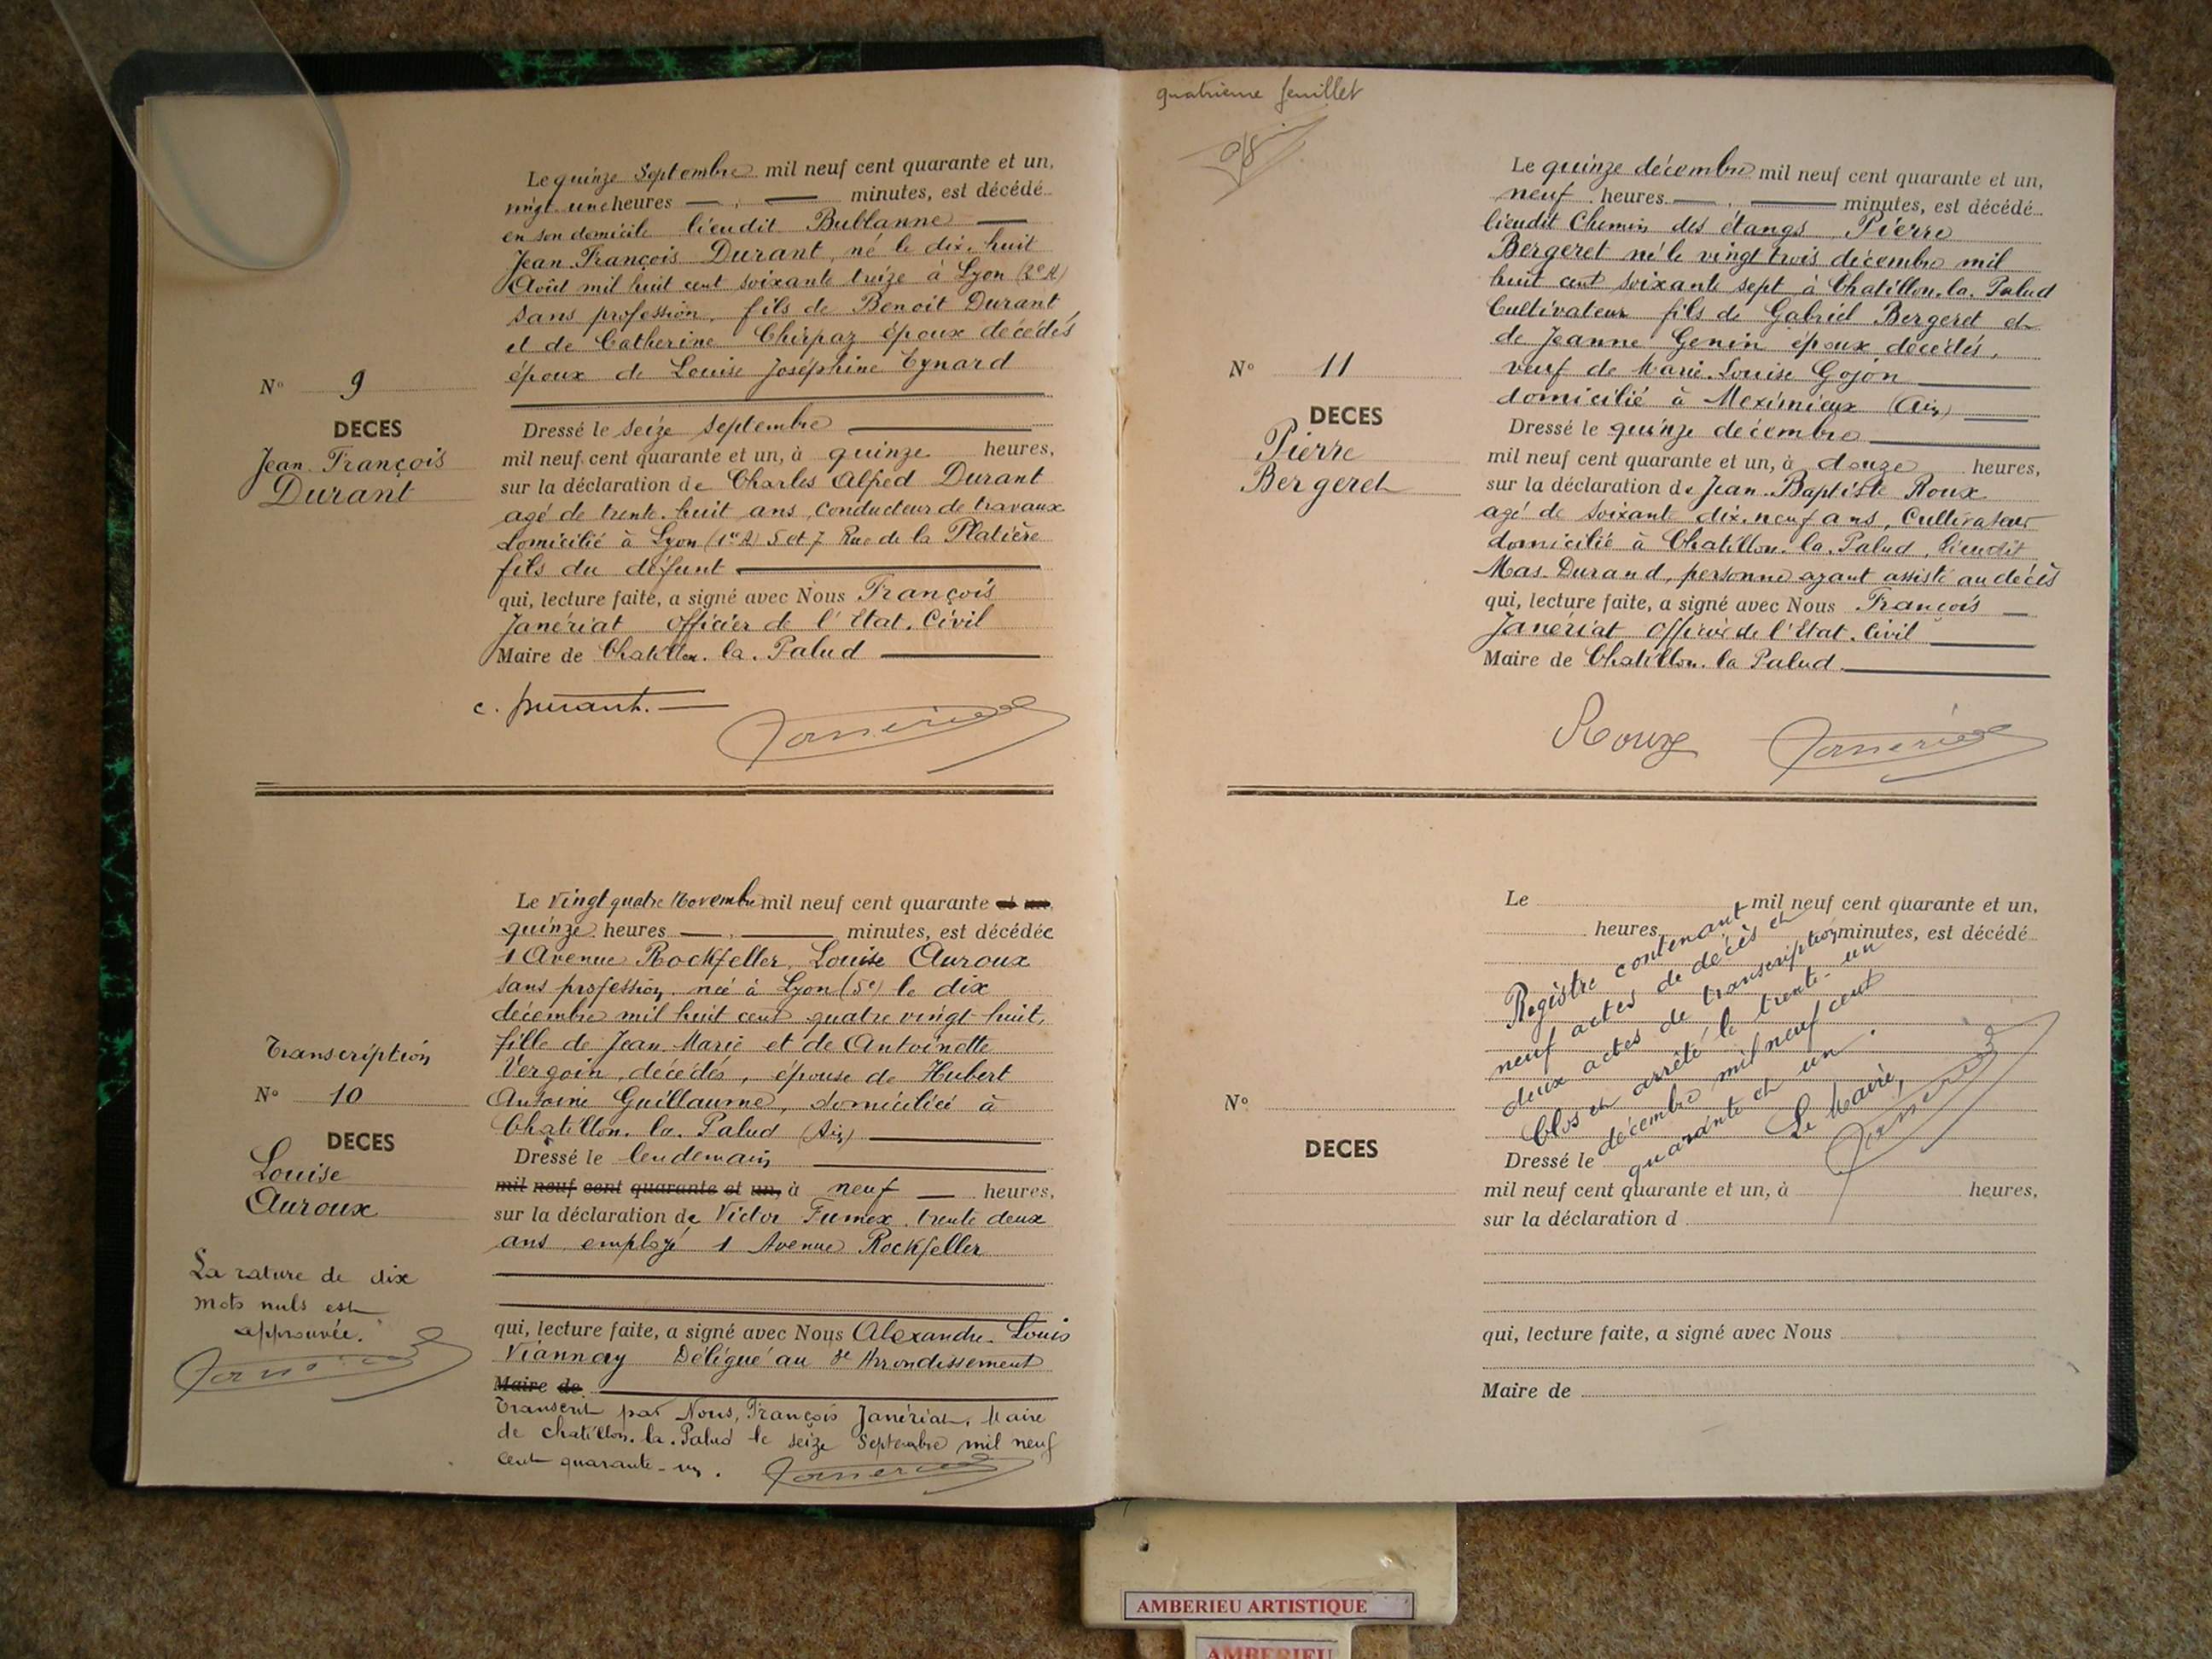 Le quinze Septembre mil neuf cent quarante et un,
vingt-une heures — . — minutes, est décédé
en son domicile lieudit Bublanne —
Jean-François Durant, né le dix-huit
Août mil huit cent soixante treize à Lyon (2e A)
sans profession, fils de Benoit Durant
et de Catherine Chirpaz époux décédés
époux de Louise Joséphine Eynard
N° 9
DECES
Jean-François
Durant
Dressé le seize Septembre
mil neuf cent quarante et un, à quinze heures,
sur la déclaration de Charles Alfred Durant
agé de trente-huit ans, conducteur de travaux
domicilié à Lyon (1er A) 5 et 7 Rue de la Platière
fils du défunt
qui, lecture faite, a signé avec Nous François
Janériat Officier de l'Etat-Civil
Maire de Chatillon-la-Palud
c. Durant.
Janériat
Le Vingt quatre Novembre mil neuf cent quarante et un,
quinze heures — . — minutes, est décédée
1 Avenue Rockfeller, Louise Auroux
sans profession, née à Lyon (5e) le dix
décembre mil huit cent quatre vingt-huit,
fille de Jean-Marie et de Antoinette
Vergoin, décédés, épouse de Hubert
Antoine Guillaume, domiciliée à
Chatillon-la-Palud (Ain)
Transcription
N° 10
DECES
Louise
Auroux
Dressé le lendemain
mil neuf cent quarante et un, à neuf — heures,
sur la déclaration de Victor Fumex, trente deux
ans employé 1 Avenue Rockfeller
La rature de dix
mots nuls est
approuvée.
Janériat
qui, lecture faite, a signé avec Nous Alexandre-Louis
Viannay Délégué au 8e Arrondissement
Maire de
Transcrit par Nous, François Janériat, Maire
de chatillon-la-Palud le seize Septembre mil neuf
cent quarante-un. Janériat
quatrieme feuillet
Le quinze décembre mil neuf cent quarante et un,
neuf heures — . — minutes, est décédé
lieudit Chemin des étangs, Pierre
Bergeret né le vingt trois décembre mil
huit cent soixante sept à Chatillon-la-Palud
Cultivateur fils de Gabriel Bergeret et
de Jeanne Genin époux décédés,
veuf de Marie-Louise Gojon
domicilié à Meximieux (Ain)
N° 11
DECES
Pierre
Bergeret
Dressé le quinze décembre
mil neuf cent quarante et un, à douze heures,
sur la déclaration de Jean-Baptiste Roux
agé de soixante dix-neuf ans, Cultivateur
domicilié à Chatillon-la-Palud, lieudit
Mas-Durand, personne ayant assisté au décès
qui, lecture faite, a signé avec Nous François
Janériat Officier de l'Etat-Civil
Maire de Chatillon-la Palud
Roux Janériat
Le mil neuf cent quarante et un,
heures minutes, est décédé
Registre contenant
neuf actes de décès et
deux actes de transcription
Clos et arrêté le trente-un
décembre mil neuf cent
quarante et un.
Le Maire,
Janériat
N°
DECES
Dressé le
mil neuf cent quarante et un, à heures,
sur la déclaration d
qui, lecture faite, a signé avec Nous
Maire de
AMBERIEU ARTISTIQUE
AMBERIEU